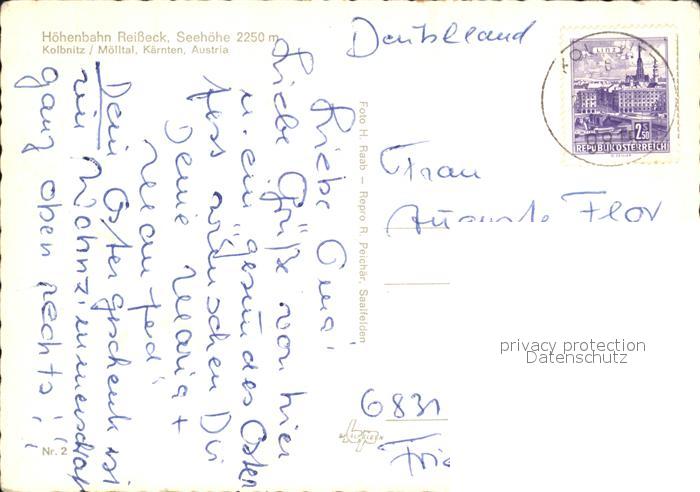 Höhenbahn Reißeck, Seehöhe 2250 m
Kolbnitz / Mölltal, Kärnten, Austria
Deutschland
LINZ
2.50
REPUBLIK ÖSTERREICH
Liebe Oma!
Liebe Grüße von hier
u. ein gesundes Oster
fest wünschen Dir
Deine Maria +
Manfred
Dein Ostergeschenk ist
im Wohnzimmerschrank
ganz oben rechts!!
Foto H. Raab – Repro R. Peichär, Saalfelden
Frau
Auguste Flor
6831
Nr. 2
privacy protection
Datenschutz